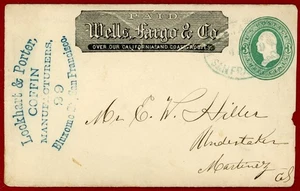 PAID
Wells, Fargo & Co.
OVER OUR CALIFORNIA AND COAST ROUTES
Lockhart & Porter,
COFFIN
MANUFACTURERS,
39
Bluxome St. San Francisco.
SAN FR
Mr E. W. Hiller
Undertaker
Martinez
Cal